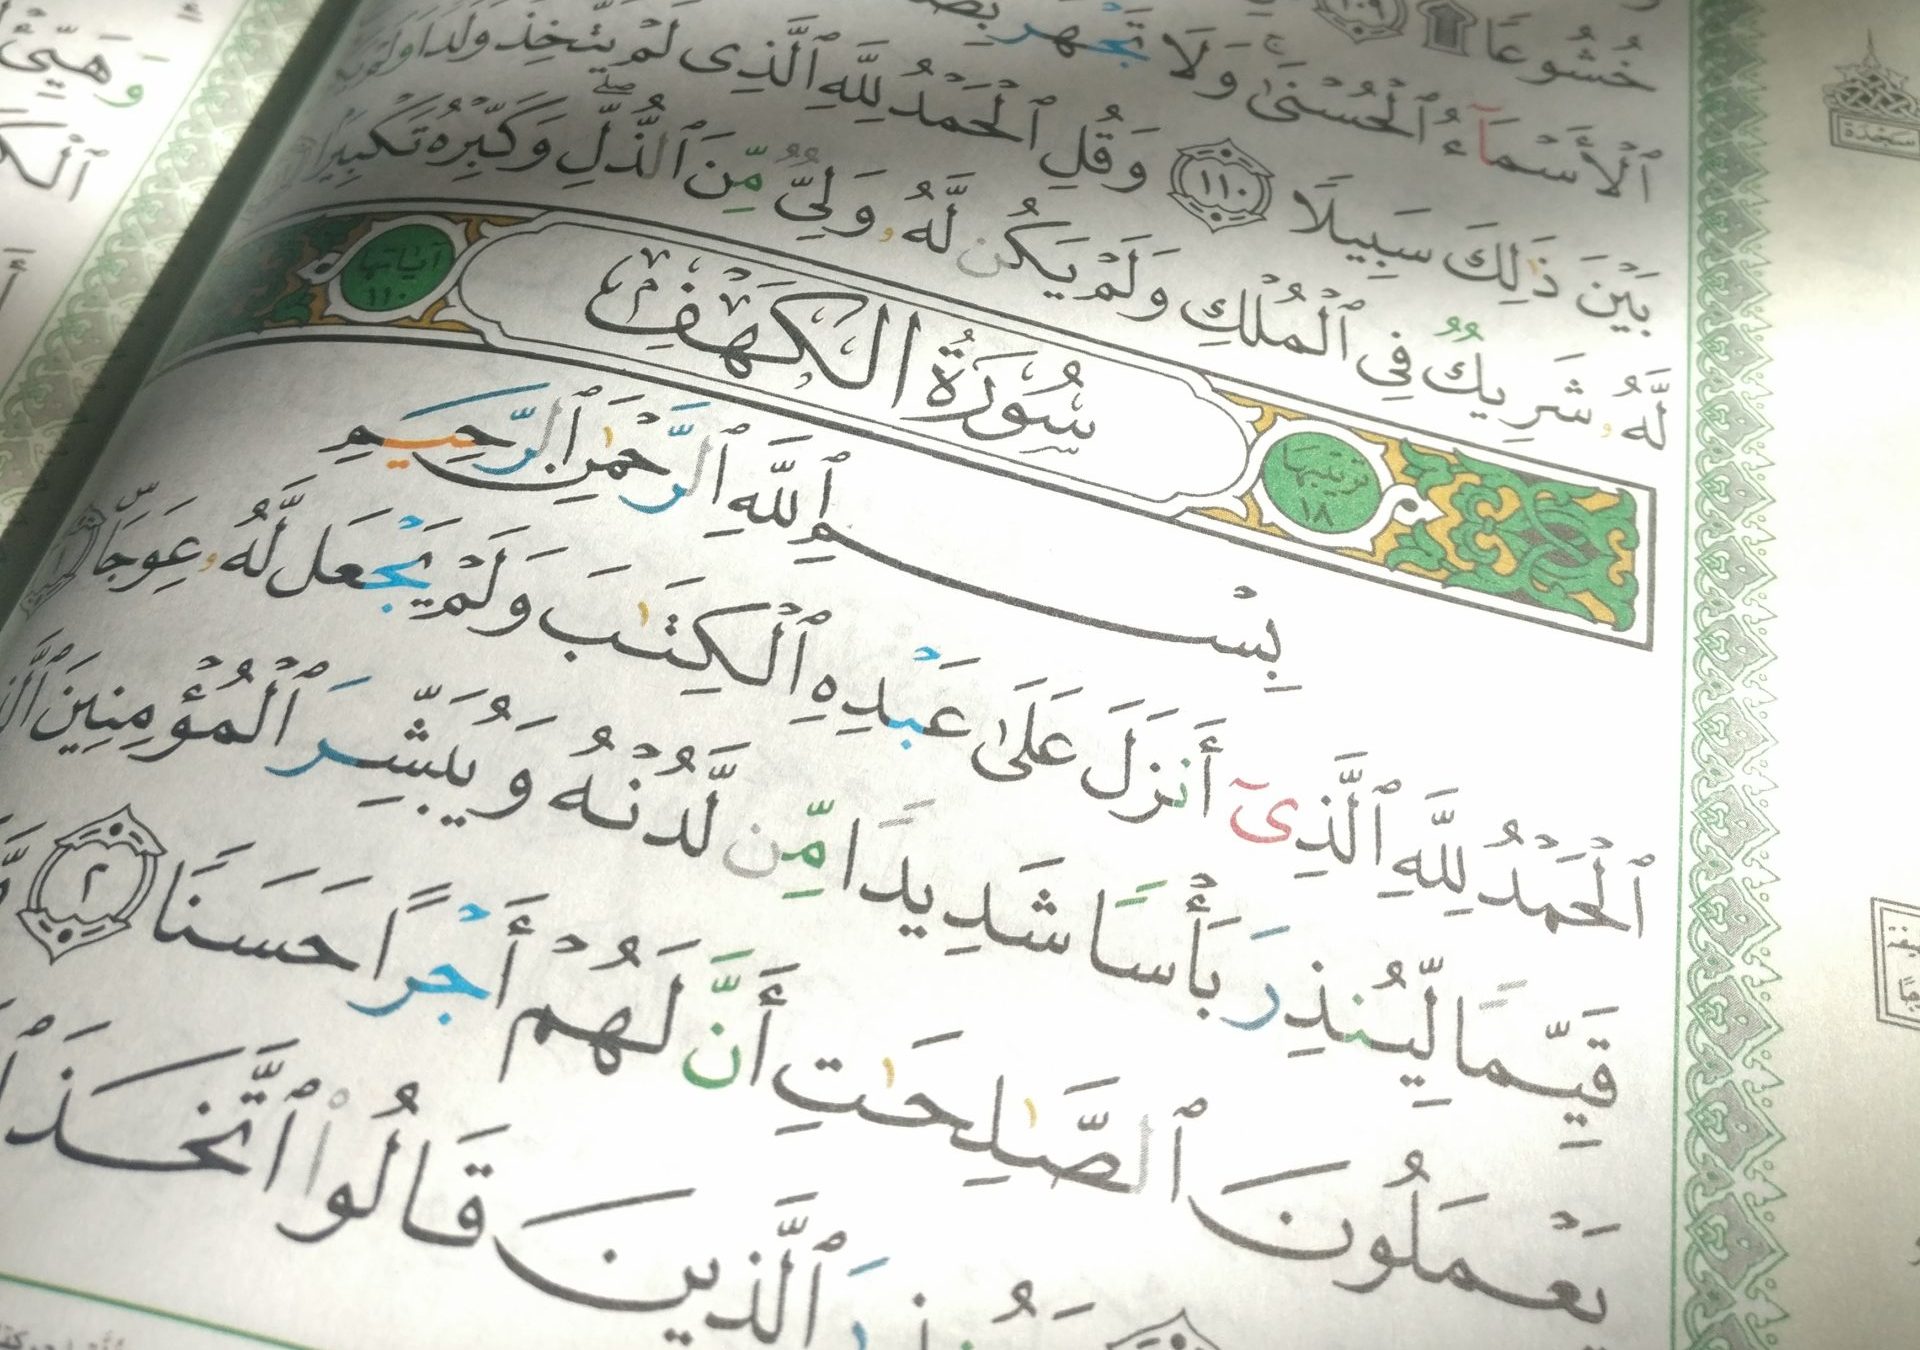 خُشُوعًا ١٠٩
ٱلْأَسْمَآءُ ٱلْحُسْنَىٰ ۚ وَلَا تَجْهَرْ
بَيْنَ ذَٰلِكَ سَبِيلًا ١١٠ وَقُلِ ٱلْحَمْدُ لِلَّهِ ٱلَّذِى لَمْ يَتَّخِذْ وَلَدًا وَلَمْ يَكُن
لَّهُۥ شَرِيكٌ فِى ٱلْمُلْكِ وَلَمْ يَكُن لَّهُۥ وَلِىٌّ مِّنَ ٱلذُّلِّ ۖ وَكَبِّرْهُ تَكْبِيرًۢا
ترتيبها ١٨ سُورَةُ الْكَهْفِ آياتها ١١٠
بِسْمِ ٱللَّهِ ٱلرَّحْمَٰنِ ٱلرَّحِيمِ
ٱلْحَمْدُ لِلَّهِ ٱلَّذِىٓ أَنزَلَ عَلَىٰ عَبْدِهِ ٱلْكِتَٰبَ وَلَمْ يَجْعَل لَّهُۥ عِوَجَاۜ ١
قَيِّمًا لِّيُنذِرَ بَأْسًا شَدِيدًا مِّن لَّدُنْهُ وَيُبَشِّرَ ٱلْمُؤْمِنِينَ ٱلَّذِينَ
يَعْمَلُونَ ٱلصَّٰلِحَٰتِ أَنَّ لَهُمْ أَجْرًا حَسَنًا ٢
ٱلَّذِينَ قَالُوا۟ ٱتَّخَذَ
سجدة